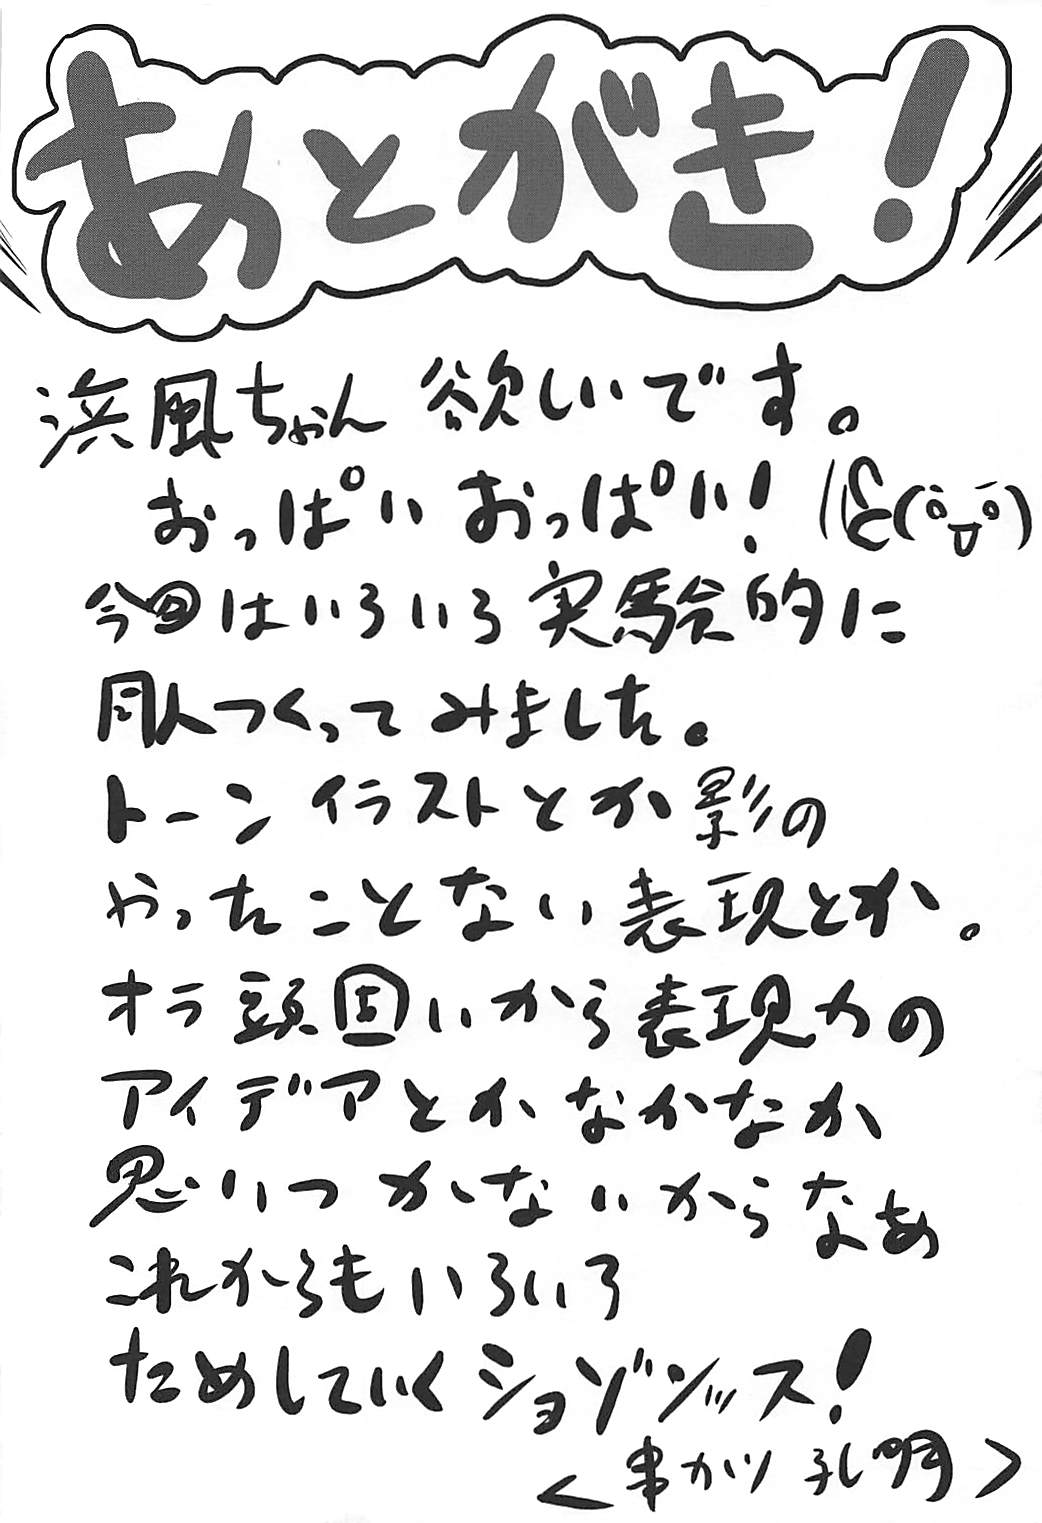 あとがき！
浜風ちゃん 欲しいです。
おっぱい おっぱい！
今回はいろいろ 実験的に
同人つくって みました。
トーン イラストとか 影の
やったことない 表現とか。
オラ 頭固いから 表現力の
アイデアとか なかなか
思いつかないからなあ
これからもいろいろ
ためしていくショゾンッス！
＜串カツ 孔明＞